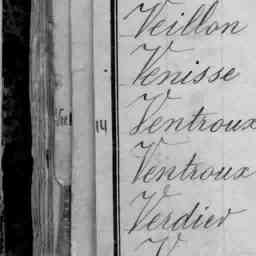 Veillon
Venisse
14 Ventroux
Ventroux
Verdier